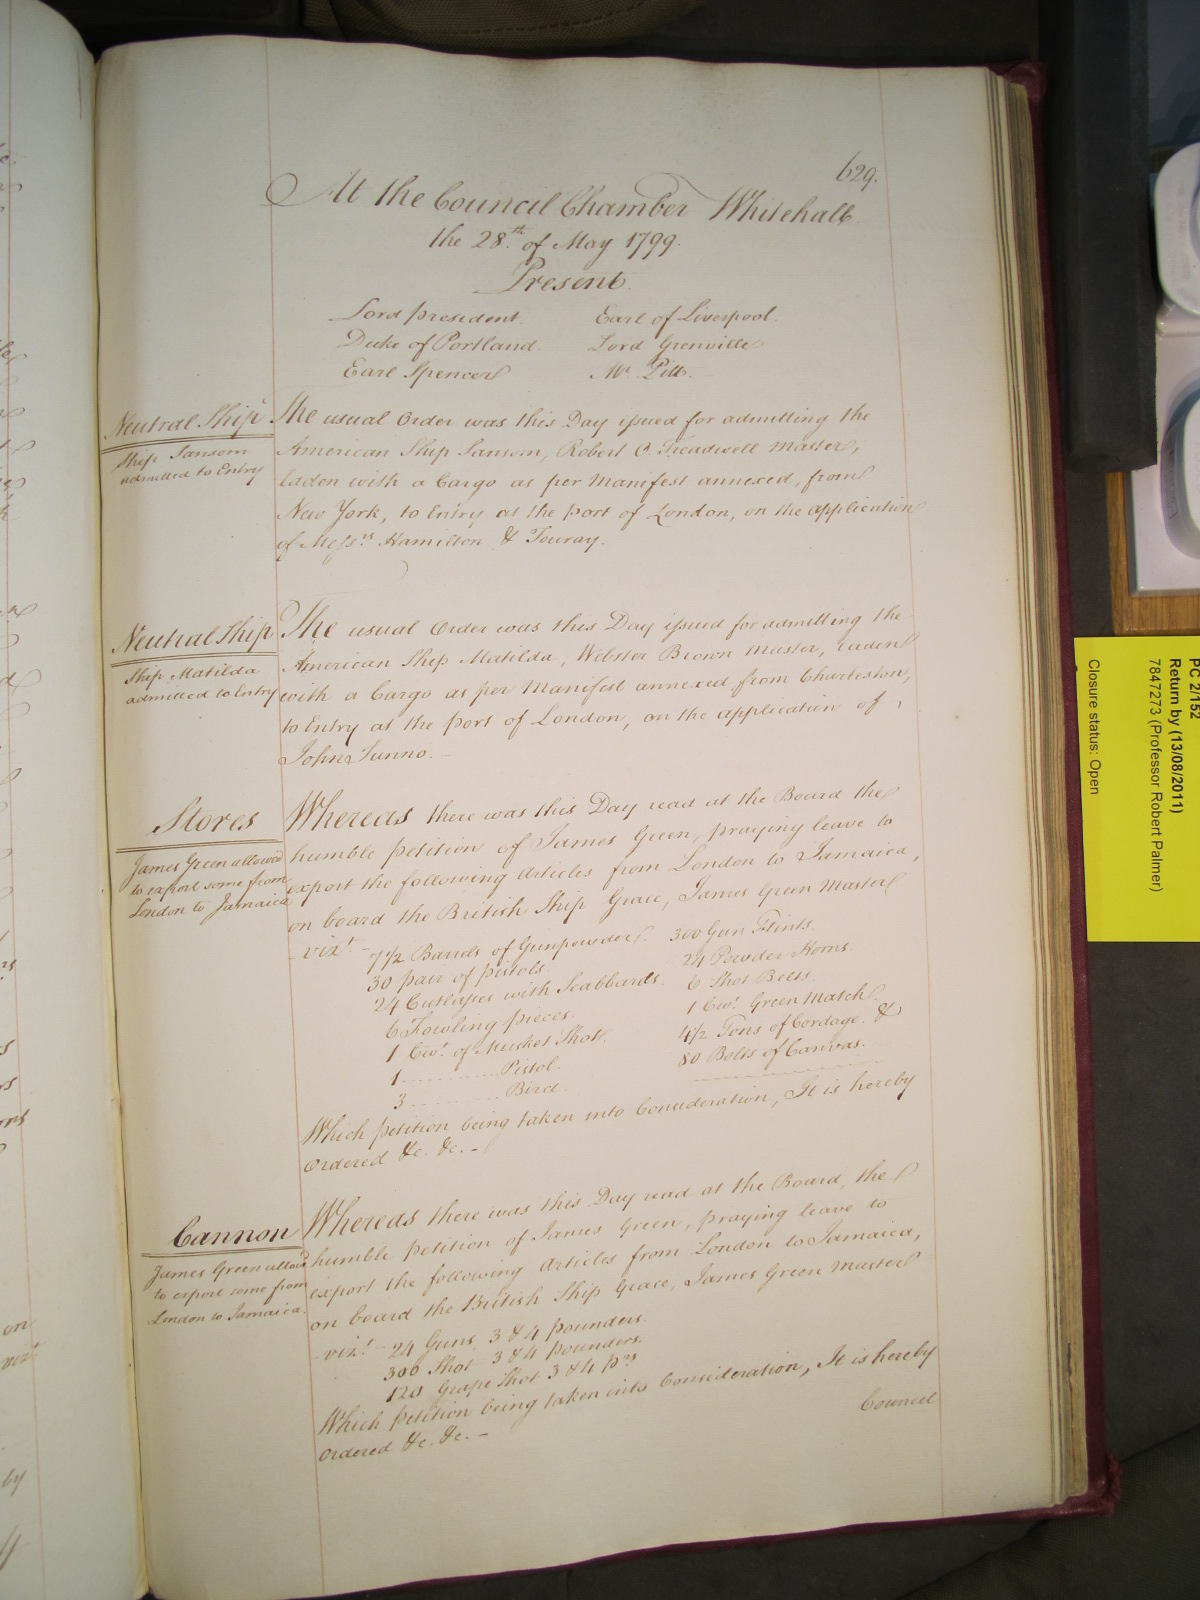 629.
At the Council Chamber Whitehall
the 28.th of May 1799.
Present
Lord president. Earl of Liverpool.
Duke of Portland. Lord Grenville
Earl Spencer Mr. Pitt.
Neutral Ship
Ship Sansom
admitted to Entry
The usual Order was this Day issued for admitting the
American Ship Sansom, Robert O. Treadwell Master,
laden with a Cargo as per Manifest annexed, from
New York, to Entry at the port of London, on the application
of Messrs. Hamilton & Touray.
Neutral Ship
Ship Matilda
admitted to Entry
The usual Order was this Day issued for admitting the
American Ship Matilda, Webster Brown Master, laden
with a Cargo as per Manifest annexed from Charleston,
to Entry at the port of London, on the application of
John Tunno.
Stores
James Green allowed
to export some from
London to Jamaica
Whereas there was this Day read at the Board the
humble petition of James Green, praying leave to
export the following Articles from London to Jamaica,
on board the British Ship Grace, James Green Master
vizt. 7 1/2 Barrels of Gunpowder. 300 Gun Flints.
30 pair of pistols. 24 Powder Horns.
24 Cutlasses with Scabbards. 6 Shot Belts.
6 Fowling pieces. 1 Cwt. Green Match.
1 Cwt. of Musket Shot. 4 1/2 Tons of Cordage. &
1 .......... Pistol. 80 Bolts of Canvas.
3 .......... Bird.
Which petition being taken into Consideration, It is hereby
Ordered &c. &c. -
Cannon
James Green allowd
to export some from
London to Jamaica.
Whereas there was this Day read at the Board, the
humble petition of James Green, praying leave to
export the following Articles from London to Jamaica,
on board the British Ship Grace, James Green Master
vizt. - 24 Guns 3 & 4 pounders.
300 Shot 3 & 4 pounders.
120 Grape Shot 3 & 4 prs
Which petition being taken into Consideration, It is hereby
Ordered &c. &c. -
Council
PC 2/152
Return by (13/08/2011)
7847273 (Professor Robert Palmer)
Closure status: Open